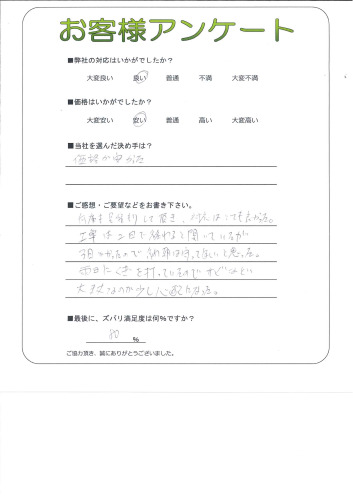 お客様アンケート
■弊社の対応はいかがでしたか？
大変良い 良い 普通 不満 大変不満
■価格はいかがでしたか？
大変安い 安い 普通 高い 大変高い
■当社を選んだ決め手は？
価格が安かった
■ご感想・ご要望などをお書き下さい。
何度も足を運んで頂き、
工事は二日で終わると聞いていたが
3日かかったので納期は守ってほしいと思った。
大丈夫なのか少し心配になった。
■最後に、ズバリ満足度は何%ですか？
80 %
ご協力頂き、誠にありがとうございました。